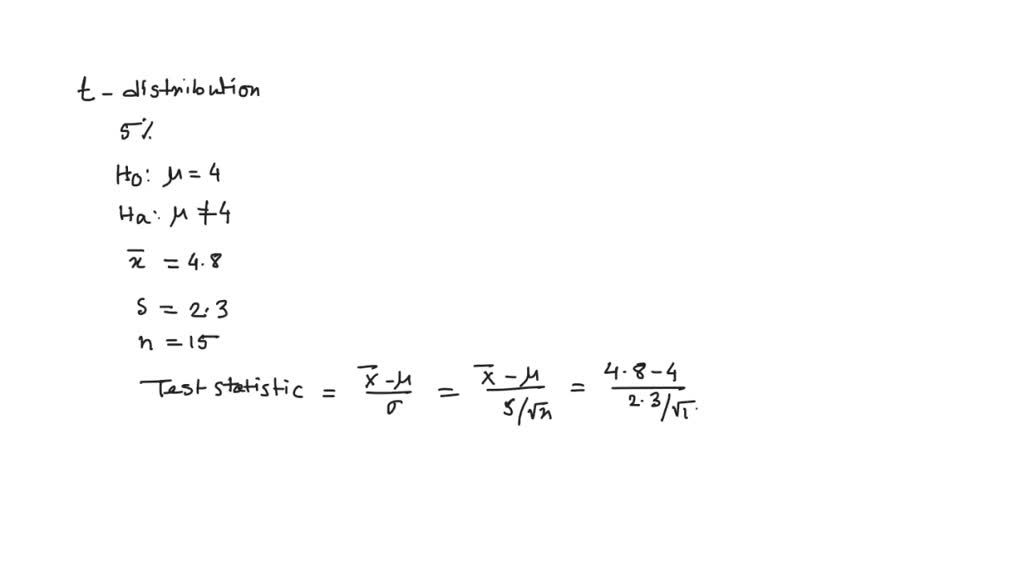 t - distribution
5%
H0: μ = 4
Ha: μ ≠ 4
x̄ = 4.8
S = 2.3
n = 15
Test statistic = x̄ - μ / σ = x̄ - μ / S/√n = 4.8 - 4 / 2.3/√1